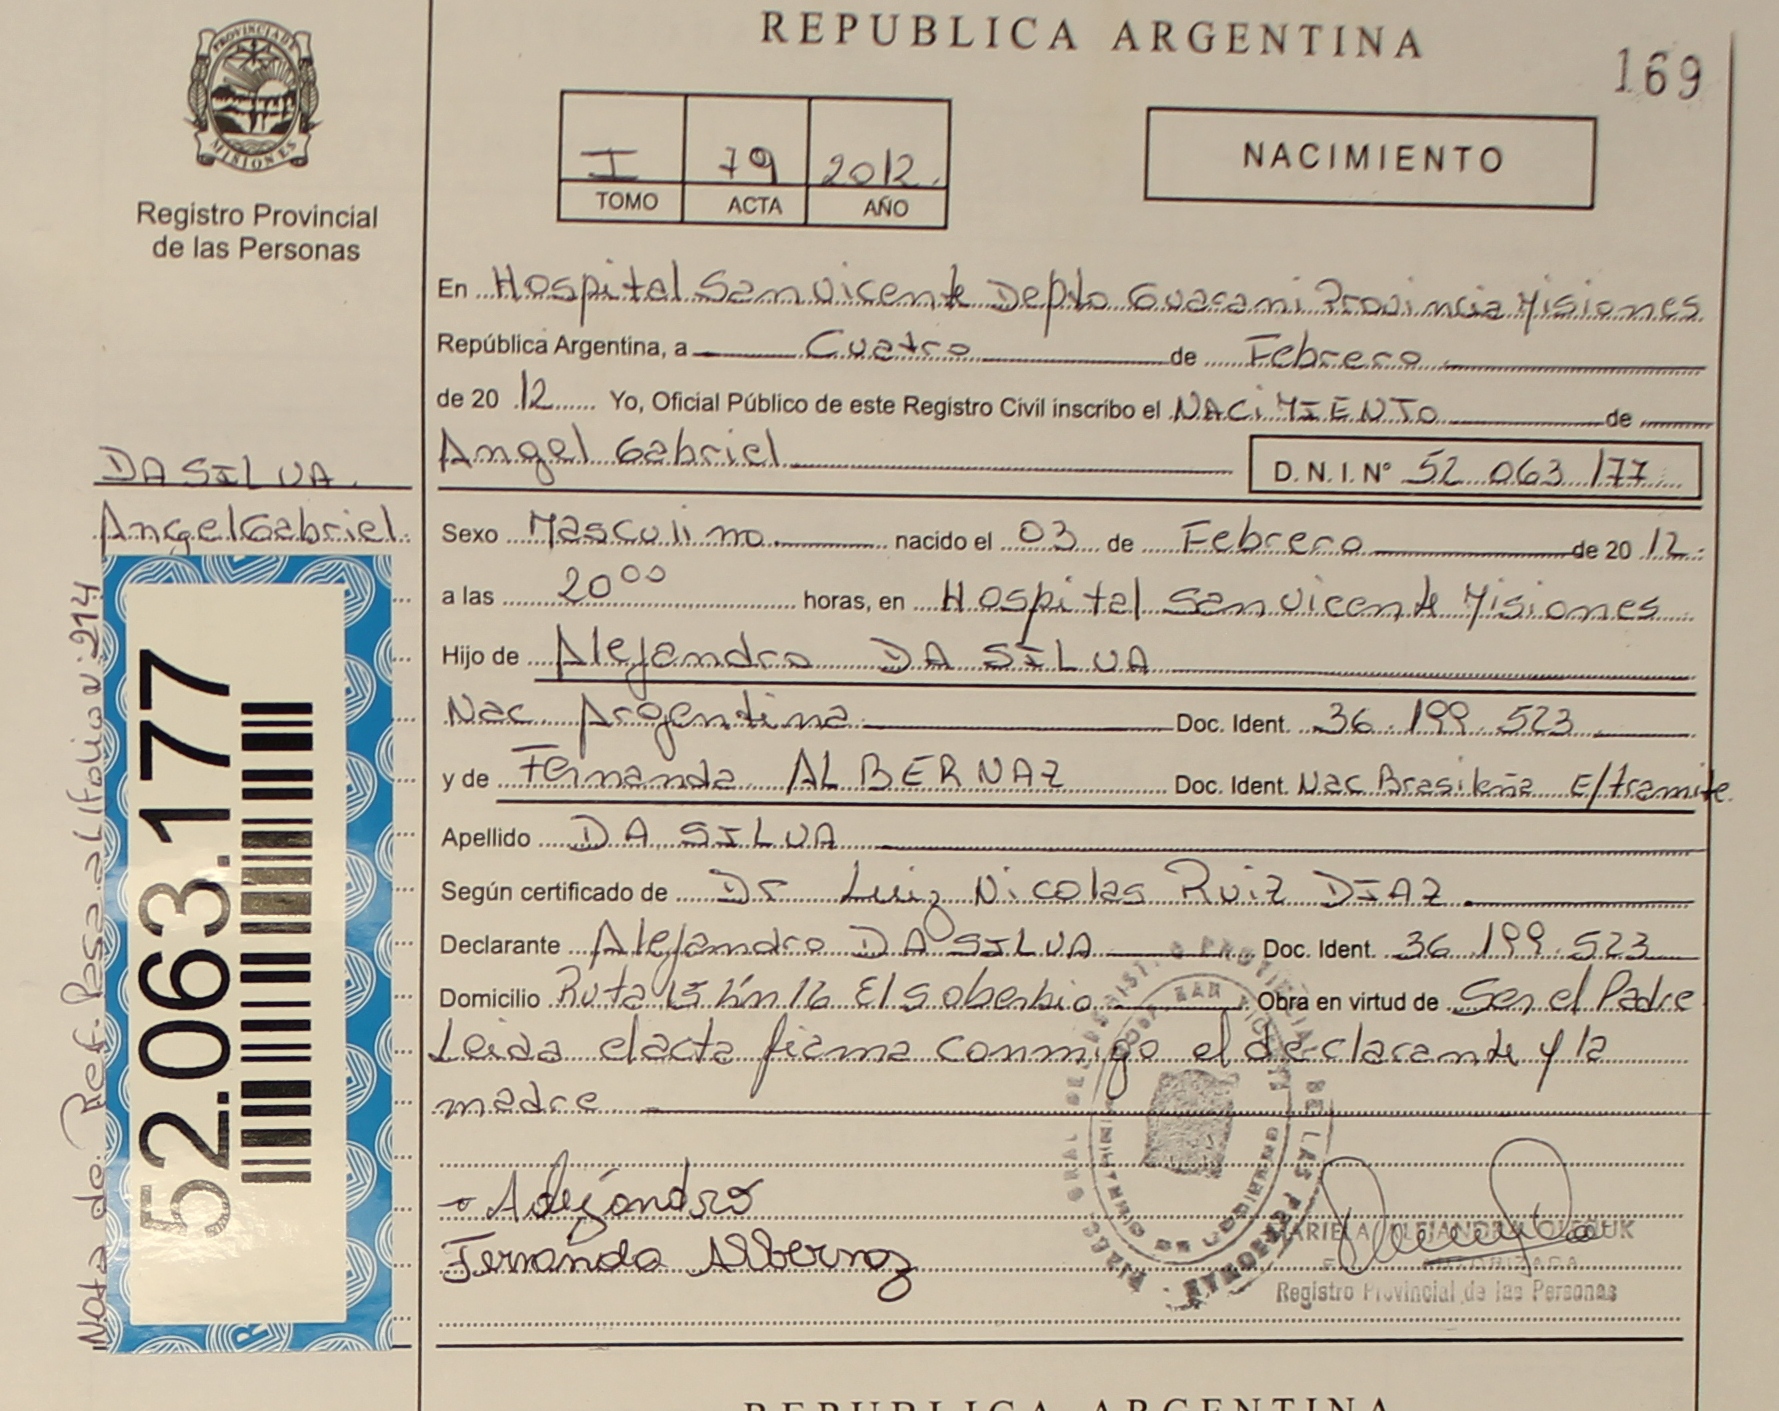 REPUBLICA ARGENTINA
169
PROVINCIA DE
MISIONES
Registro Provincial
de las Personas
I 79 2012.
TOMO ACTA AÑO
NACIMIENTO
En Hospital San Vicente Depto Guarani Provincia Misiones
República Argentina, a Cuatro de Febrero
de 2012 Yo, Oficial Público de este Registro Civil inscribo el NACIMIENTO de
Angel Gabriel D.N.I.Nº 52 063 177
DA SILVA
Angel Gabriel
Sexo Masculino nacido el 03 de Febrero de 2012
a las 20⁰⁰ horas, en Hospital San Vicente Misiones
Hijo de Alejandro DA SILVA
Nac Argentina Doc. Ident. 36.199.523
y de Fernanda ALBERNAZ Doc. Ident. Nac Brasileña E/tramite
Apellido DA SILVA
Según certificado de Dr Luiz Nicolas Ruiz DIAZ
Declarante Alejandro DA SILVA Doc. Ident. 36.199.523
Domicilio Ruta 15 km 16 El soberbio Obra en virtud de Ser el Padre
Leida el acta firma conmigo el declarante y la
madre
Alejandro
Fernanda Albernoz
Registro Provincial de las Personas
52.063.177
Nota de Ref. Pasa al folio nº 214
REPUBLICA ARGENTINA